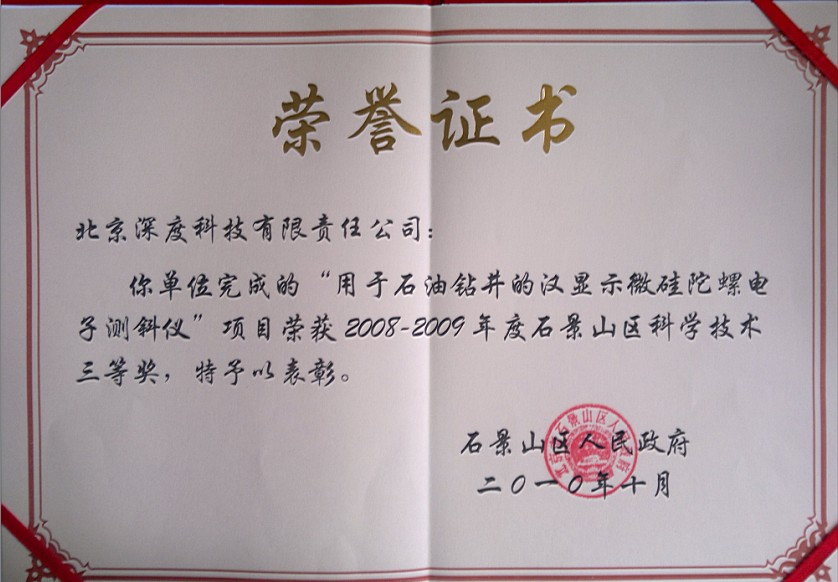 荣誉证书
北京深度科技有限责任公司：
你单位完成的“用于石油钻井的汉显示微硅陀螺电
子测斜仪”项目荣获2008-2009年度石景山区科学技术
三等奖，特予以表彰。
石景山区人民政府
二〇一〇年十月